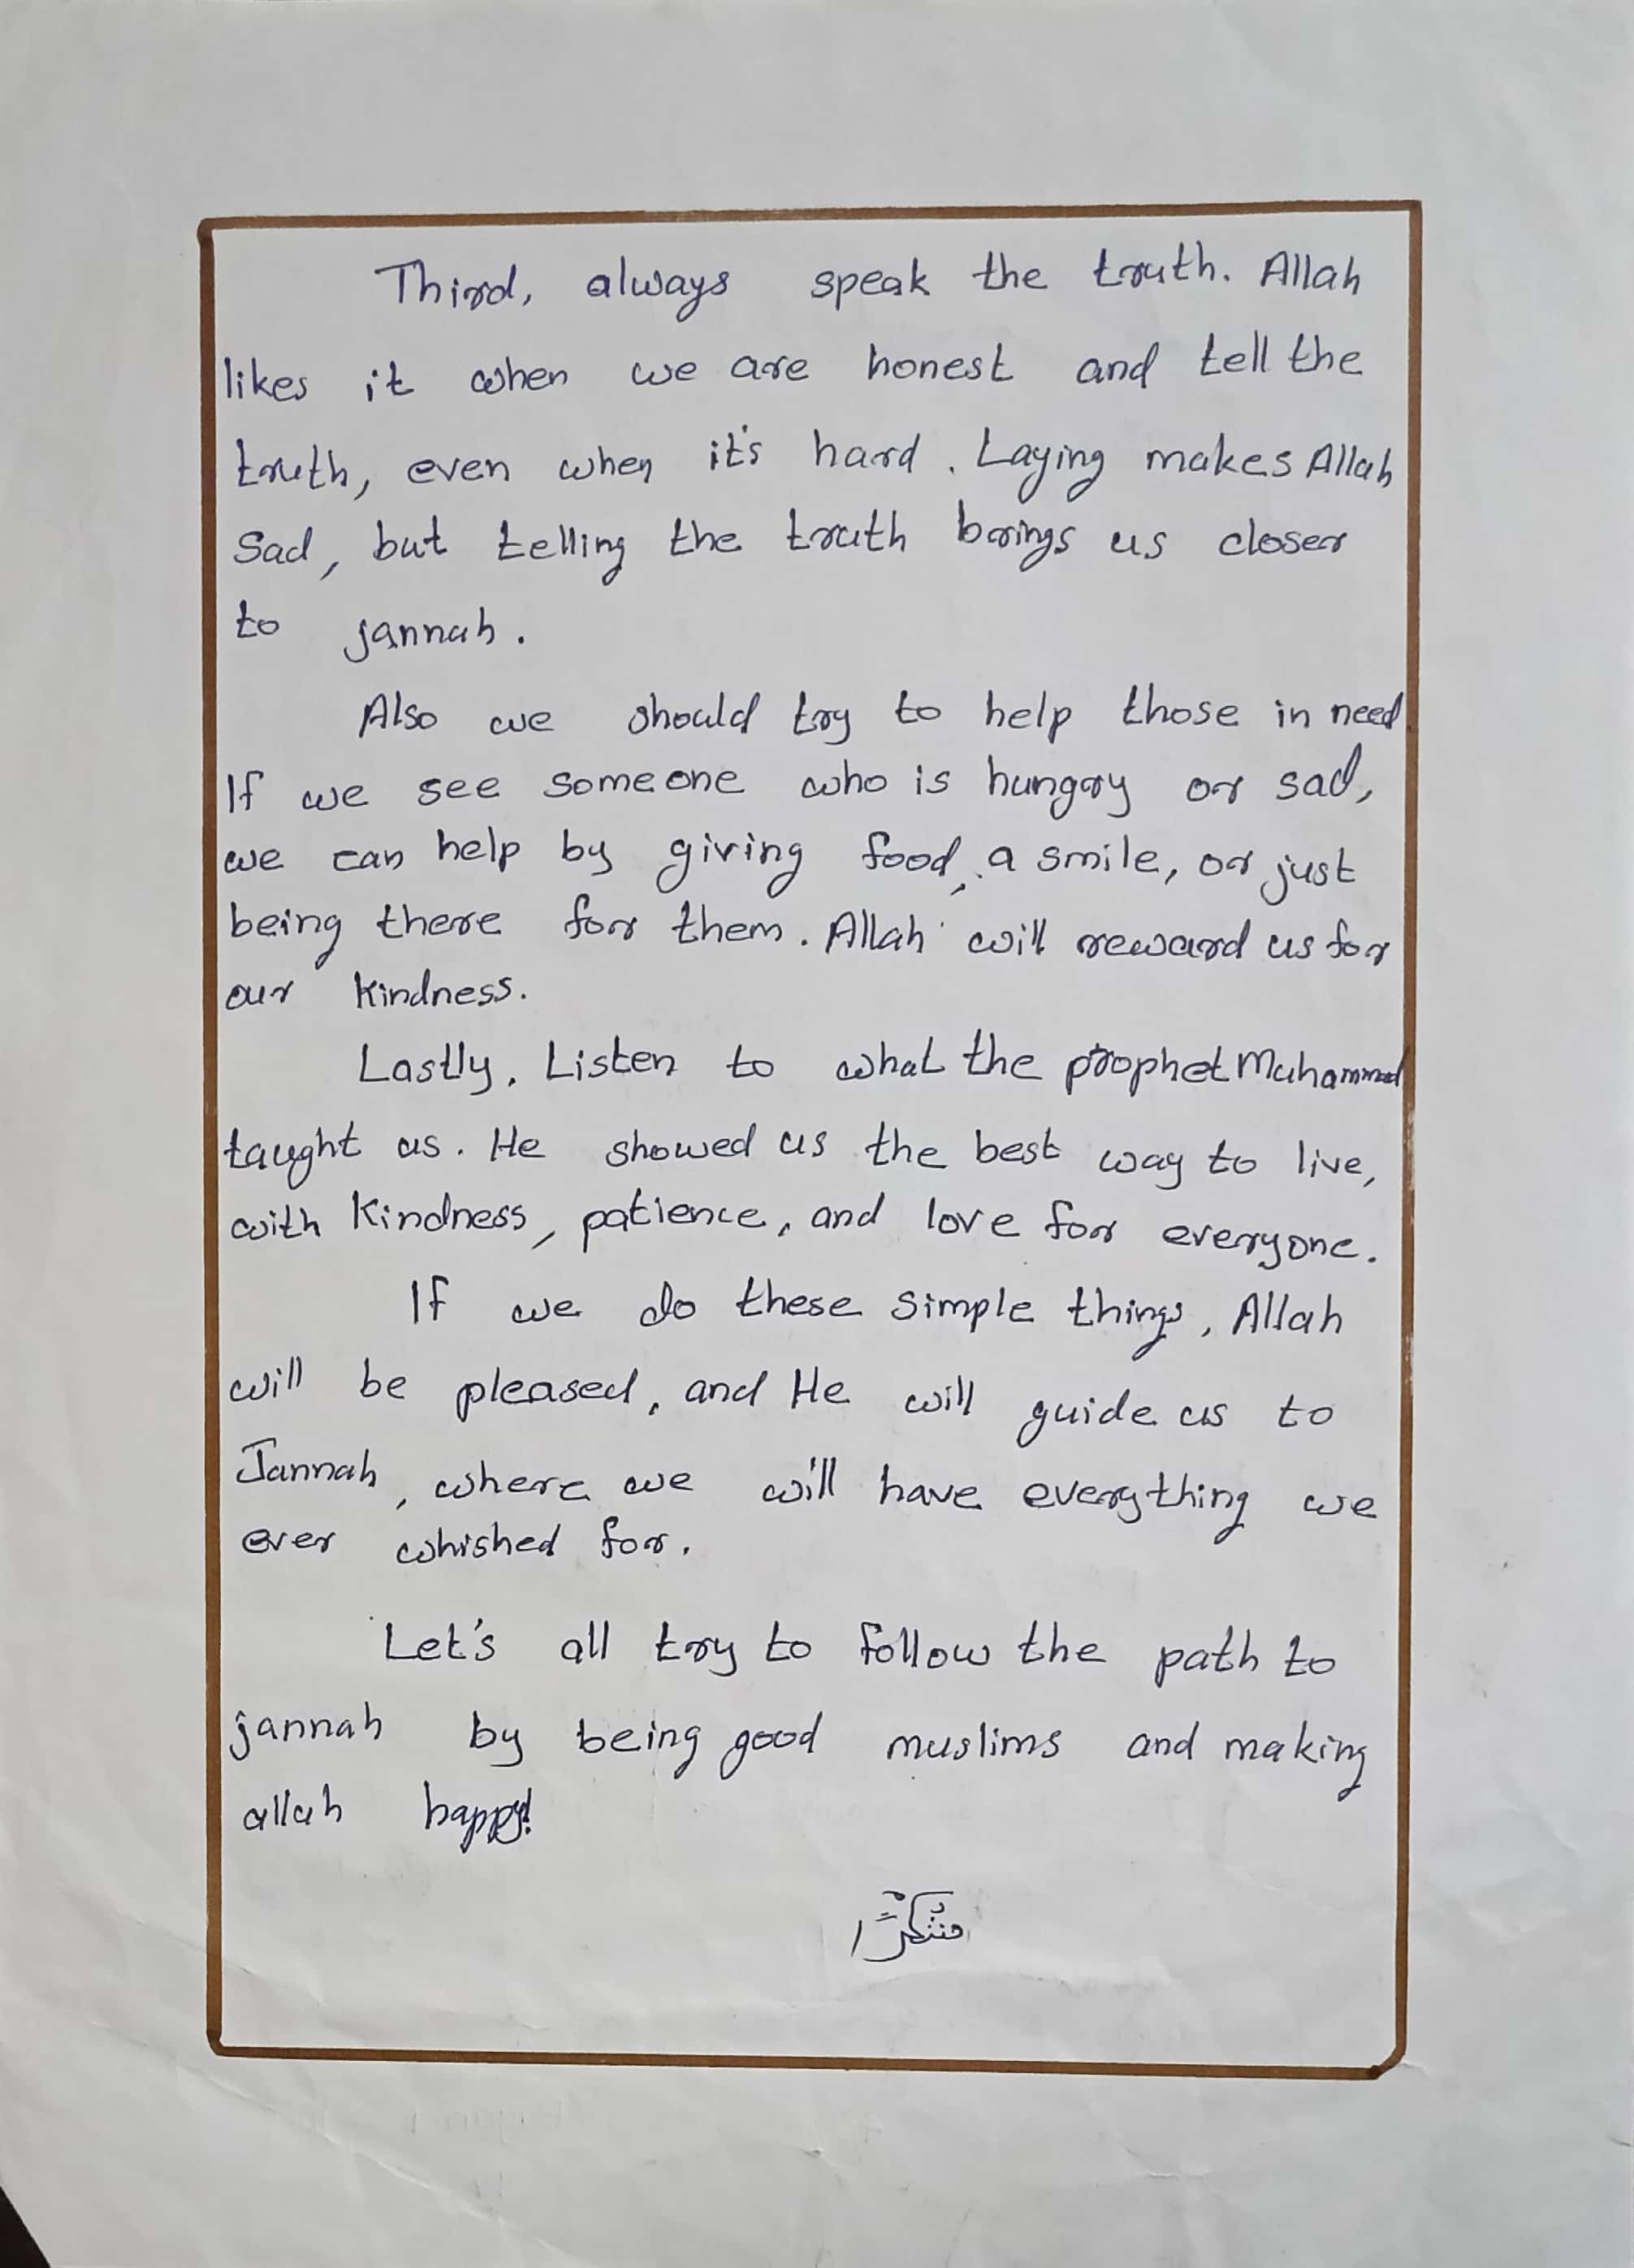 Third, always speak the truth. Allah
likes it when we are honest and tell the
truth, even when it's hard. Laying makes Allah
Sad, but telling the truth brings us closer
to jannah.
Also we should try to help those in need
If we see someone who is hungry or sad,
we can help by giving food, a smile, or just
being there for them. Allah will reward us for
our kindness.
Lastly, Listen to what the prophet Muhammad
taught us. He showed us the best way to live,
with kindness, patience, and love for everyone.
If we do these simple things, Allah
will be pleased, and He will guide us to
Jannah, where we will have everything we
ever whished for.
Let's all try to follow the path to
jannah by being good muslims and making
allah happy!
شُكْرًا